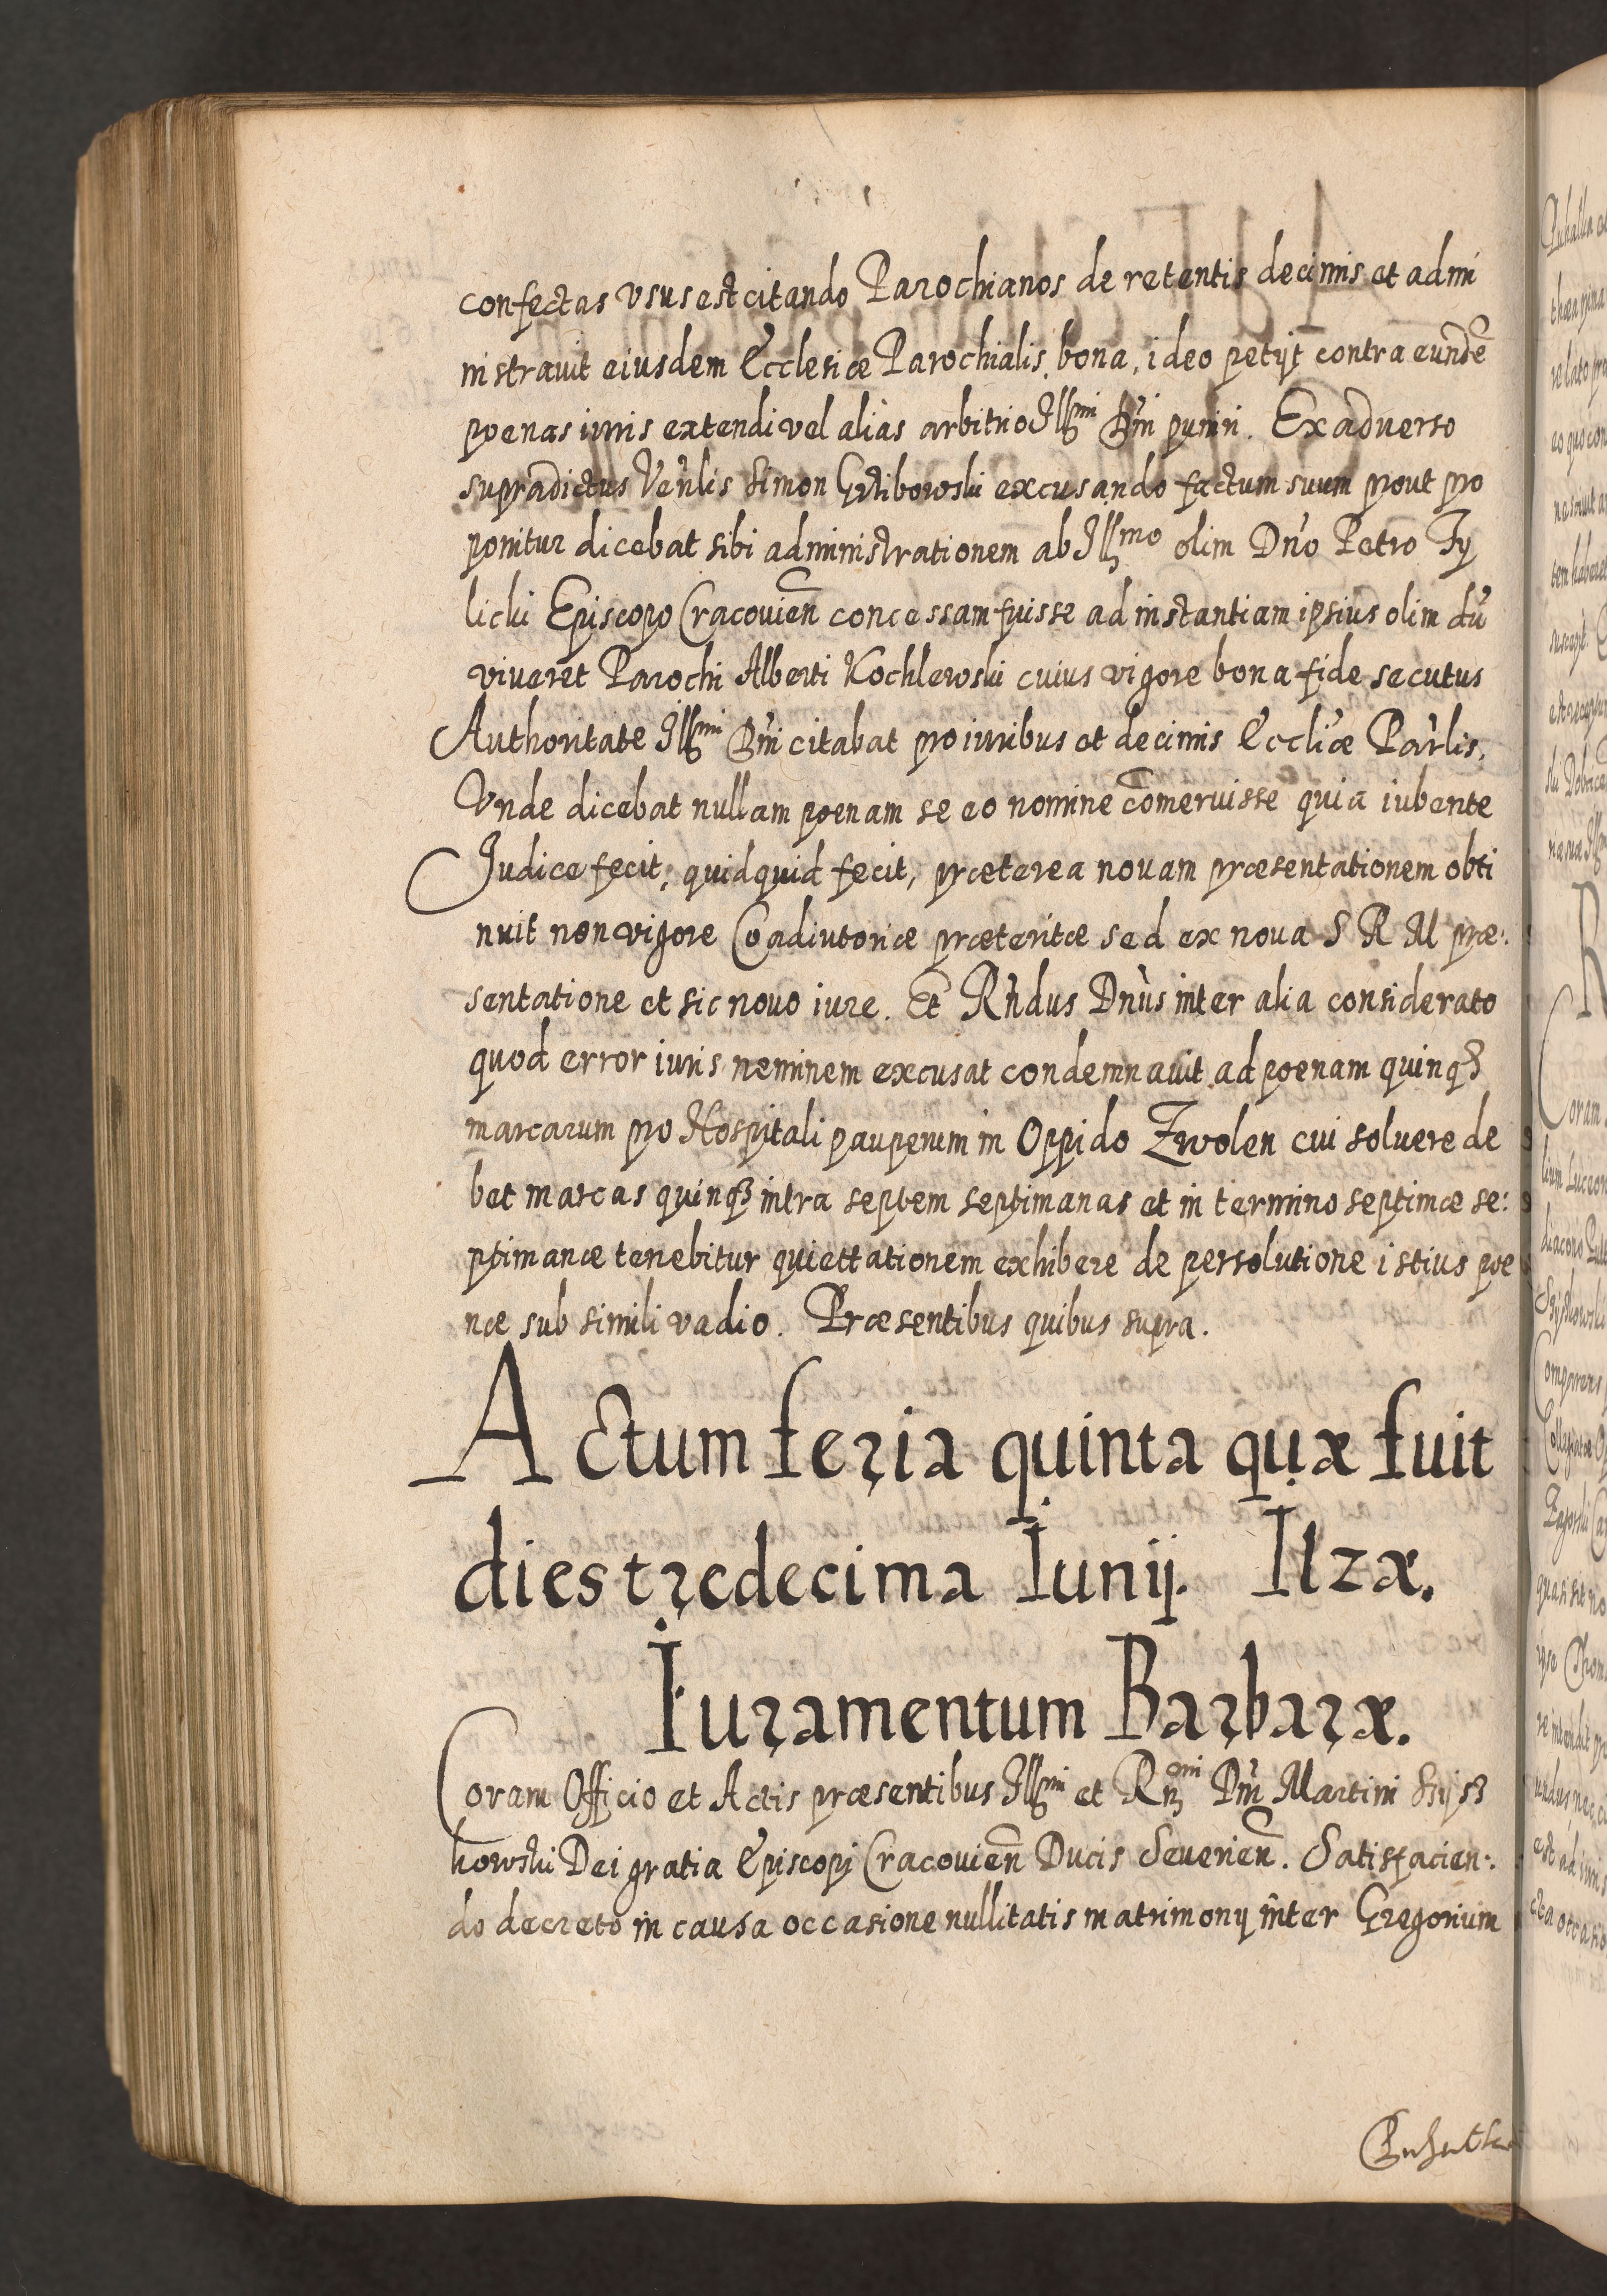 confectas vsus est citando Parochianos de retentis decimis et admi
nistrauit eiusdem Ecclesiæ Parochialis bona, ideo petijt contra eundē
poenas iuris extendi vel aliàs arbitrio Illmi Dni puniri. Ex aduerso
supradictus Venlis Simon Grzibowski excusando factum suum prout pro
ponitur dicebat sibi administrationem ab Illmo olim Dno Petro Ty
licki Episcopo Cracouien concessam fuisse ad instantiam ipsius olim dū
viueret Parochi Alberti Kochlewski cuius vigore bona fide secutus
Authoritate Illmi Dni citabat pro iuribus et decimis Eccliæ Parlis.
Vnde dicebat nullam poenam se eo nomine com̄eruisse quia iubente
Judice fecit, quidquid fecit, præterea nouam præsentationem obti
nuit non vigore Coadiutoriæ præteritæ sed ex noua S R M præ:
sentatione et sic nouo iure. Et Rndus Dnus inter alia considerato
quod error iuris neminem excusat condemnauit ad poenam quinqz
marcarum pro Hospitali pauperum in Oppido Zwolen cui soluere de
bet marcas quinqz intra septem septimanas et in termino septimæ se:
ptimanæ tenebitur quiettationem exhibere de persolutione istius poe
næ sub simili vadio. Præsentibus quibus supra.
Actum feria quinta quæ fuit
dies tredecima Iunij. Ilzæ.
Iuramentum Barbaræ.
Coram Officio et Actis præsentibus Illmi et Rndmi Dni Martini Szysz
kowski Dei gratia Episcopi Cracouien Ducis Seuerien. Satisfacien:
do decreto in causa occasione nullitatis matrimonij inter Gregorium